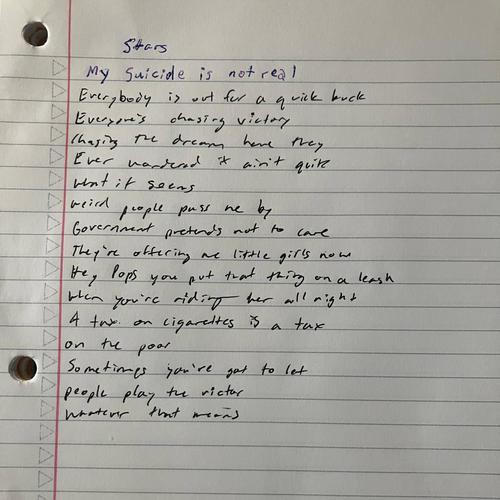 Stars
My Suicide is not real
Everybody is out for a quick buck
Everyone's chasing victory
Chasing the dream have they
Ever wandered it ain't quite
what it seems
weird people pass me by
Government pretends not to care
They're offering me little girls now
Hey Pops you put that thing on a leash
When you're riding her all night
A tax on cigarettes is a tax
on the poor
Sometimes you've got to let
people play the victor
whatever that means